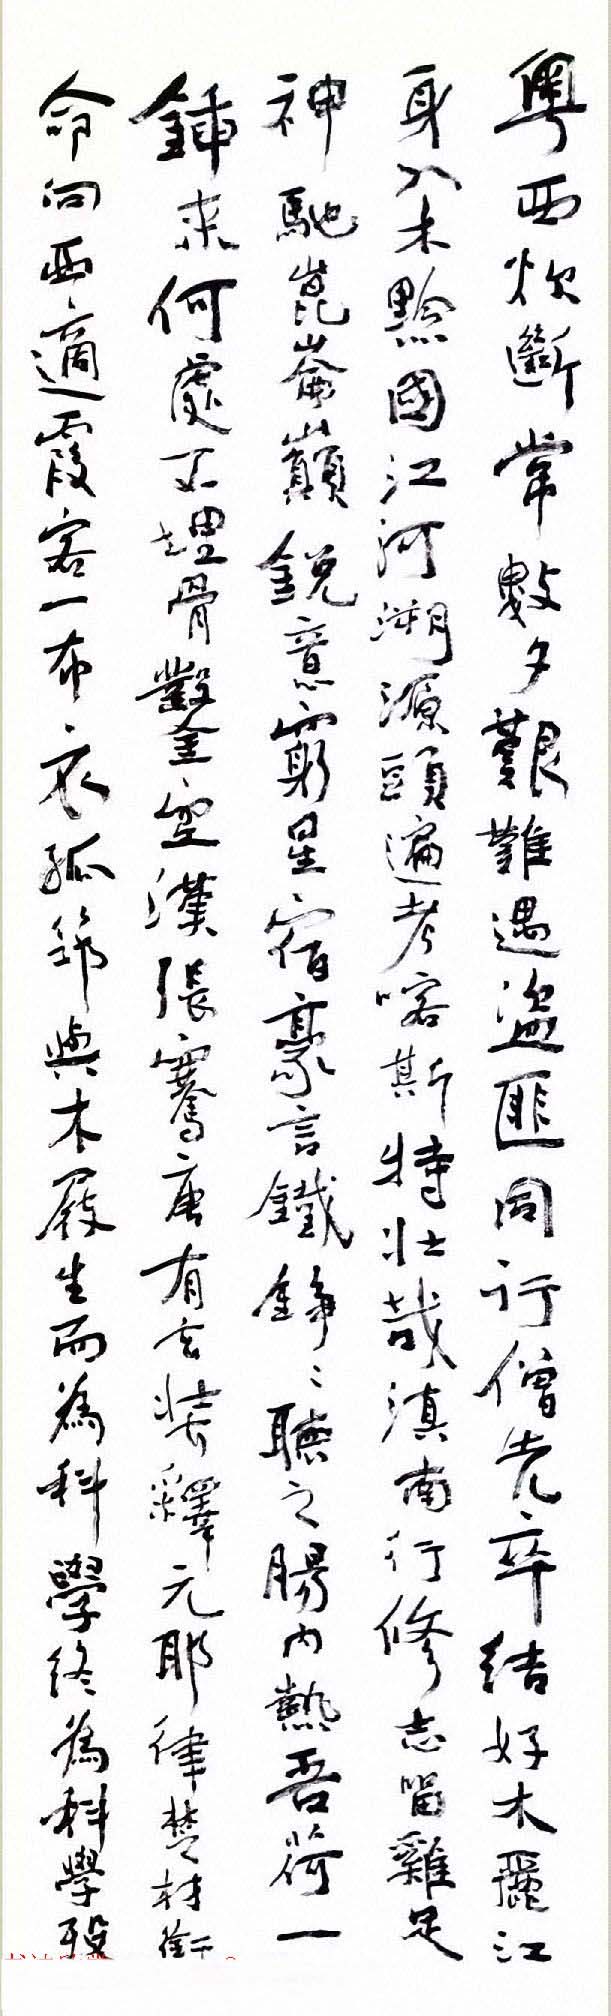 粤西炊斷常數夕艱難遇盜匪同行僧先卒結好木麗江
身入木黔國江河溯源頭遍考喀斯特壯哉滇南行修志留雞足
神馳崑崙巔銳意窮星宿豪言鐵錚々聽之腸内熱吾荷一
鍤来何處不埋骨鑿空漢張騫唐有玄奘釋元耶律楚材銜
命向西適霞客一布衣孤筇與木屐生而為科學終為科學歿